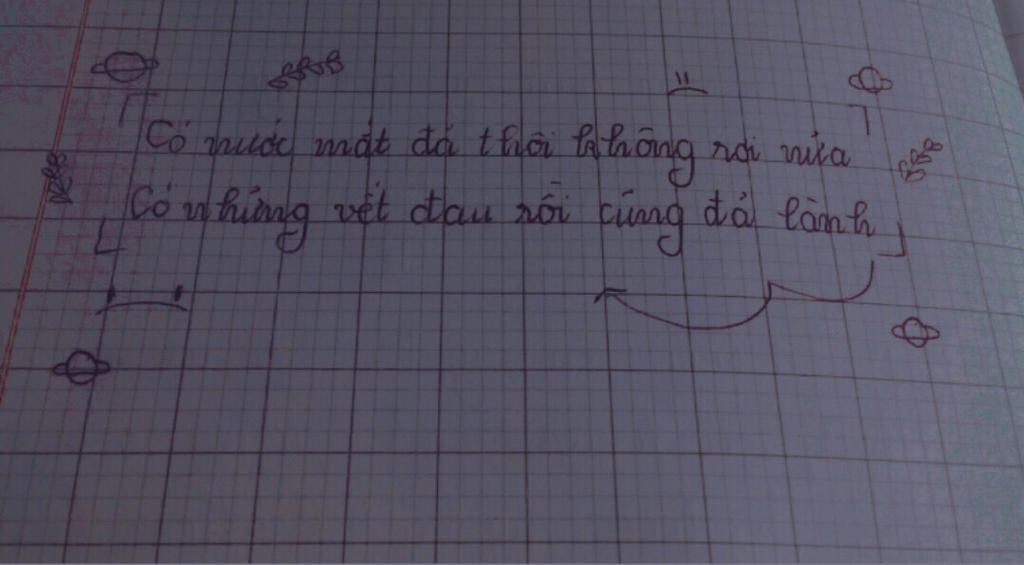 Có nước mắt đã thôi không rơi nữa
Có những vết đau rồi cũng đã lành